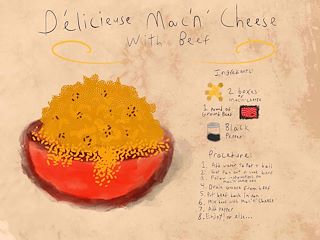 Délicieuse Mac'n' Cheese
With Beef
Ingredients:
2 boxes
of
mac n cheese
1 pound of
Ground Beef
Black
Pepper
Procedure:
1. Add water to pot & boil
2. Get pan out & cook beef
3. Follow instructions on
4. Drain grease from beef
5. Put beef back in pan
6. Mix beef with Mac n' Cheese
7. Add Pepper
8. Enjoy! or else...